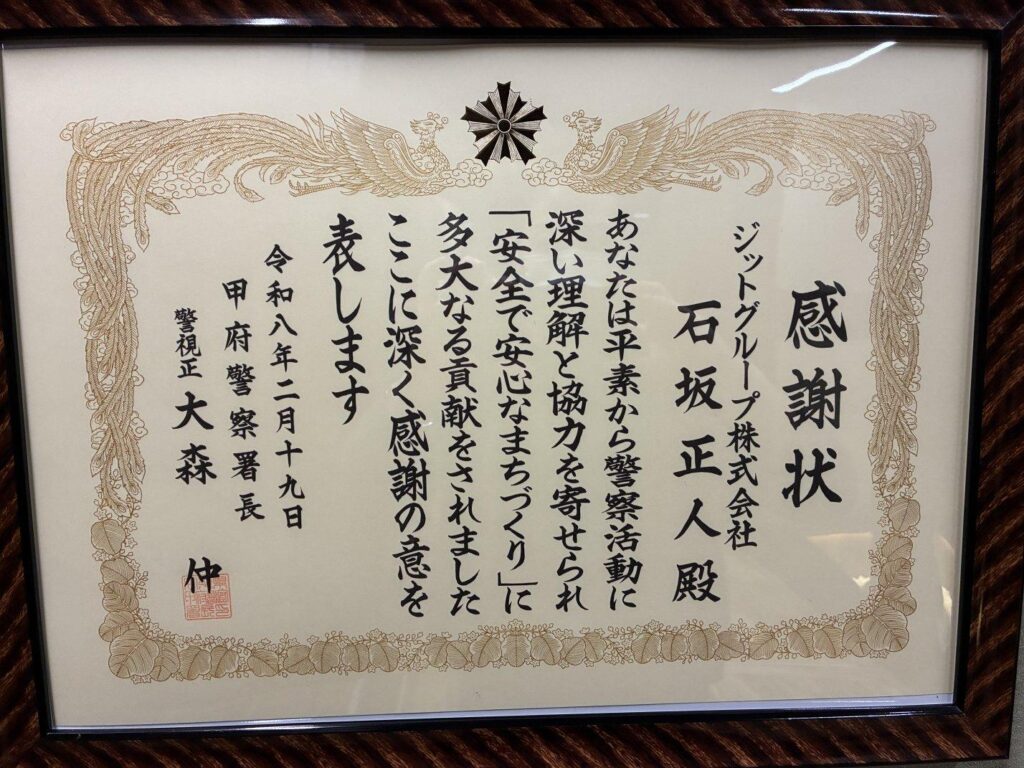 感謝状
ジットグループ株式会社
石坂正人殿
あなたは平素から警察活動に
深い理解と協力を寄せられ
「安全で安心なまちづくり」に
多大なる貢献をされました
ここに深く感謝の意を
表します
令和八年二月十九日
甲府警察署長
警視正 大森 仲